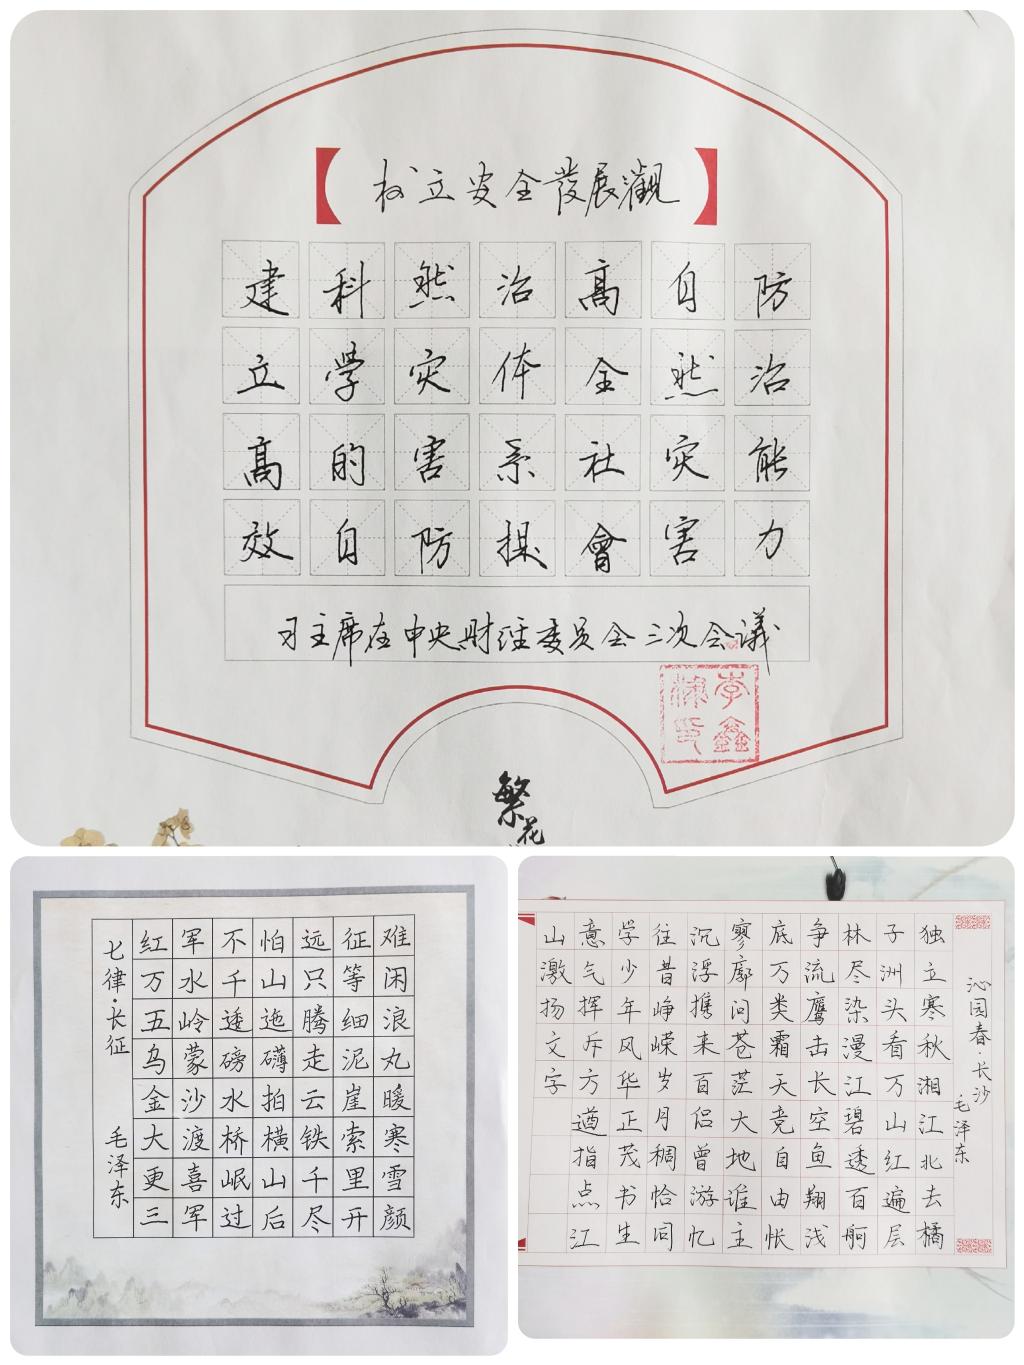 【树立安全發展觀】
建立高效
科學的自
然灾害防
治体系提
高全社會
自然灾害
防治能力
习主席在中央財经委员会三次会議
李鑫
繁花
七律·长征
毛泽东
红军不怕远征难
万水千山只等闲
五岭逶迤腾细浪
乌蒙磅礴走泥丸
金沙水拍云崖暖
大渡桥横铁索寒
更喜岷山千里雪
三军过后尽开颜
沁园春·长沙
毛泽东
独立寒秋湘江北去橘
子洲头看万山红遍层
林尽染漫江碧透百舸
争流鹰击长空鱼翔浅
底万类霜天竞自由怅
寥廓问苍茫大地谁主
沉浮携来百侣曾游忆
往昔峥嵘岁月稠恰同
学少年风华正茂书生
意气挥斥方遒指点江
山激扬文字